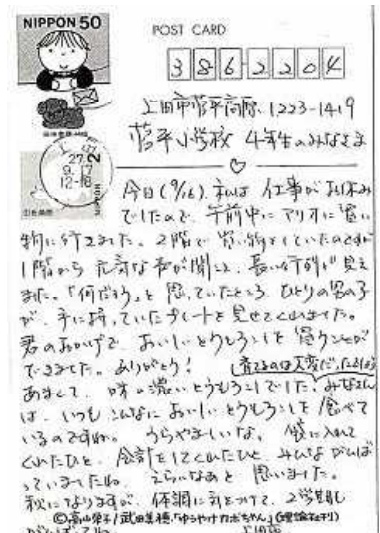 NIPPON 50
POST CARD
386-2204
上田市菅平高原 1223-1419
菅平小学校 4年生のみなさま
27. 9. 17
12-18
今日(9/16)、私は仕事がお休み
でしたので、午前中にアリオに買い
物に行きました。2階で買い物をしていたのですが
1階から元気な声が聞こえ、長い行列が見え
ました。「何だろう」と思っていたところ、ひとりの男の子
が、手に持っていたプレートを見せてくれました。
君のおかげで、おいしいとうもろこしを買うことが
できました。ありがとう!
育てるのは大変だったでしょう
あまくて、味の濃いとうもろこしでした。みなさん
は、いつもこんなにおいしいとうもろこしを食べて
いるのですね。うらやましいな。袋に入れて
くれたひと、会計をしてくれたひと、みんながんば
っていましたね。えらいなあと思いました。
秋になりますが、体調に気をつけて、2学期も
©高山栄子/武田美穂「ゆうやけカボちゃん」(理論社刊)
がんばってね。